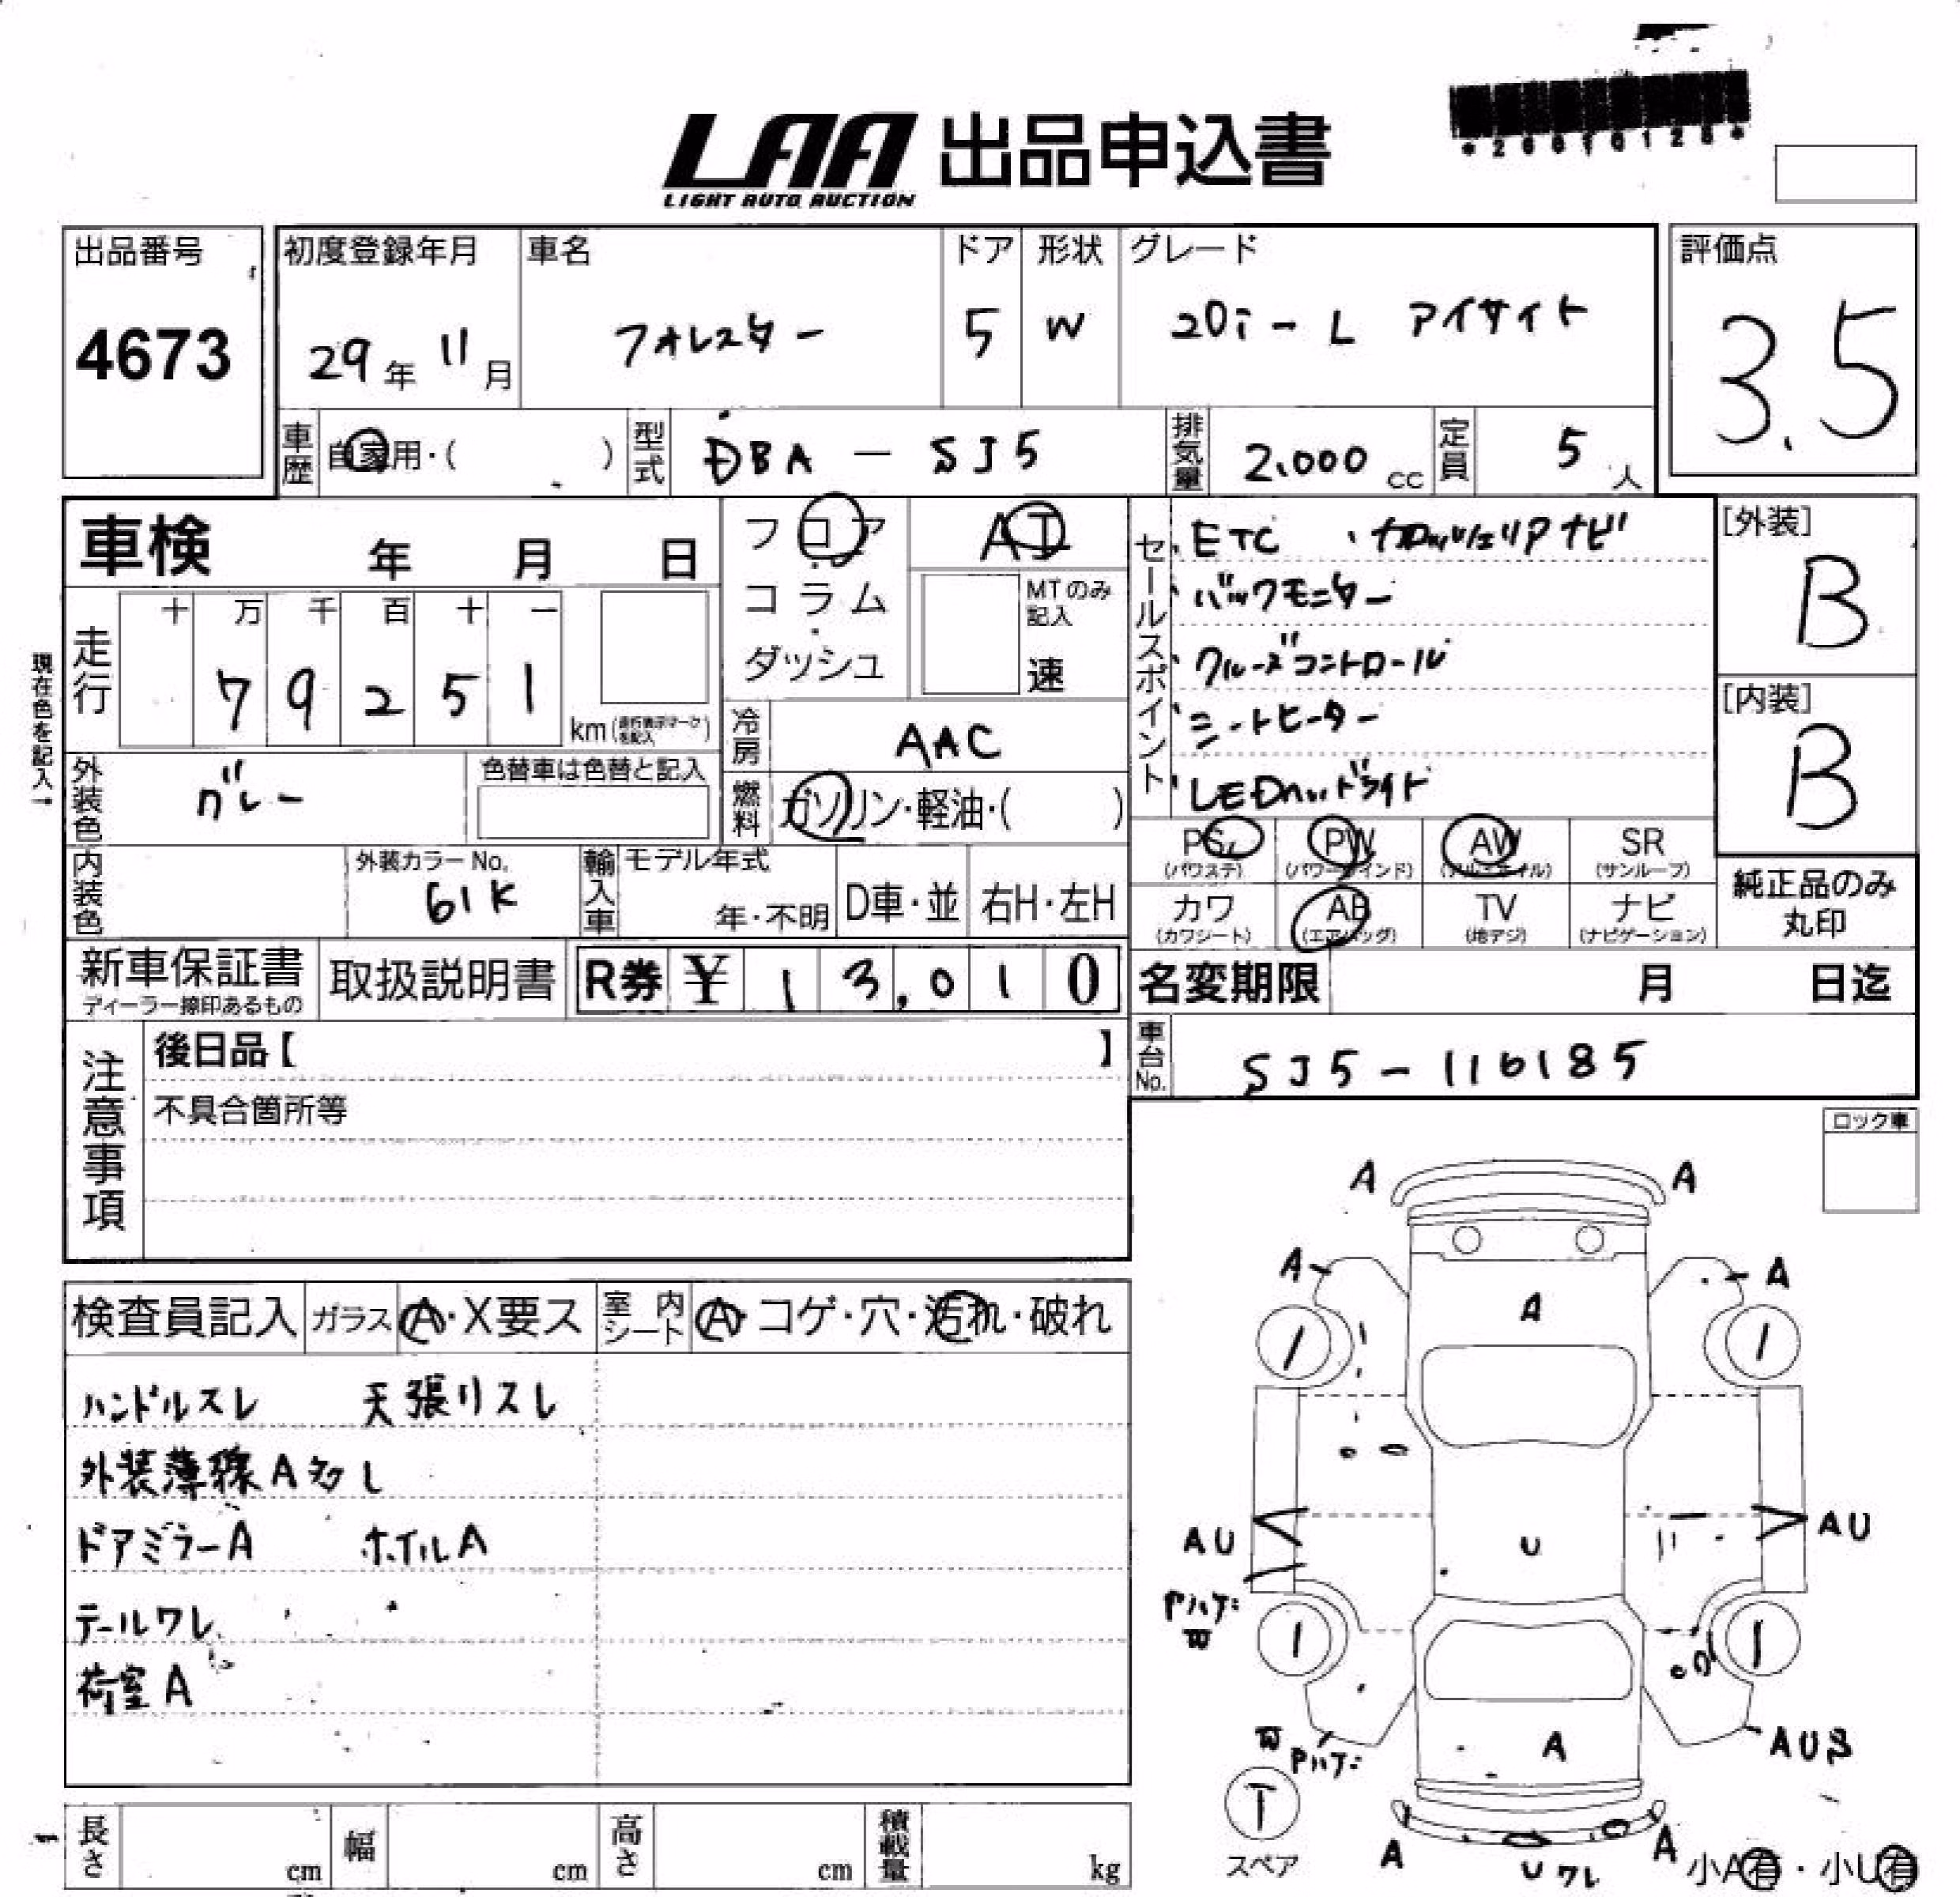 LAA 出品申込書
LIGHT AUTO AUCTION
出品番号
4673
初度登録年月
29年 11月
車名
フォレスター
ドア
5
形状
W
グレード
20i-L アイサイト
評価点
3.5
車歴
自家用・( )
型式
DBA-SJ5
排気量
2,000 cc
定員
5人
車検 年 月 日
フロア
コラム
ダッシュ
AT
MTのみ記入
速
現在色を記入→
走行
十 万 千 百 十 一
7 9 2 5 1
km
冷房
AAC
外装色
グレー
色替車は色替と記入
燃料
ガソリン・軽油・( )
内装色
外装カラーNo.
61K
輸入車
モデル年式
年・不明
D車・並
右H・左H
セールスポイント
・ETC ・カロッツェリアナビ
・バックモニター
・クルーズコントロール
・シートヒーター
・LEDヘッドライト
[外装]
B
[内装]
B
PS PW AW SR
(パワステ) (パワーウインド) (アルミホイル) (サンルーフ)
カワ AB TV ナビ
(カワシート) (エアバッグ) (地デジ) (ナビゲーション)
純正品のみ
丸印
新車保証書
ディーラー捺印あるもの
取扱説明書
R券 ¥ 13,010
名変期限 月 日迄
車台No.
SJ5-116185
注意事項
後日品【 】
不具合箇所等
ロック車
検査員記入
ガラス
A・X要ス
室内シート
A・コゲ・穴・汚れ・破れ
ハンドルスレ 天張リスレ
外装薄線A多し
ドアミラーA ホイルA
テールワレ
荷室A
A A
A A
A
AU U AU
Pハゲ
A AUS
Pハゲ
T
スペア
A A
U ワレ
小A有・小U有
長さ cm
幅 cm
高さ cm
積載量 kg